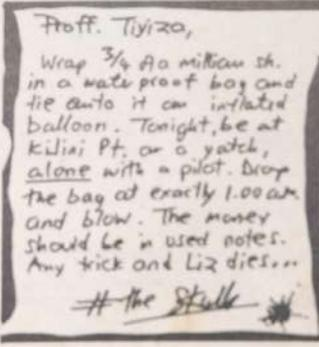 Proff. Tiyiza,
Wrap 3/4 Aa million sh.
in a water proof bag and
tie onto it an inflated
balloon. Tonight, be at
Kilini Pt. on a yatch,
alone with a pilot. Drop
the bag at exactly 1.00 a.m.
and blow. The money
should be in used notes.
Any trick and Liz dies...
# the Skulls